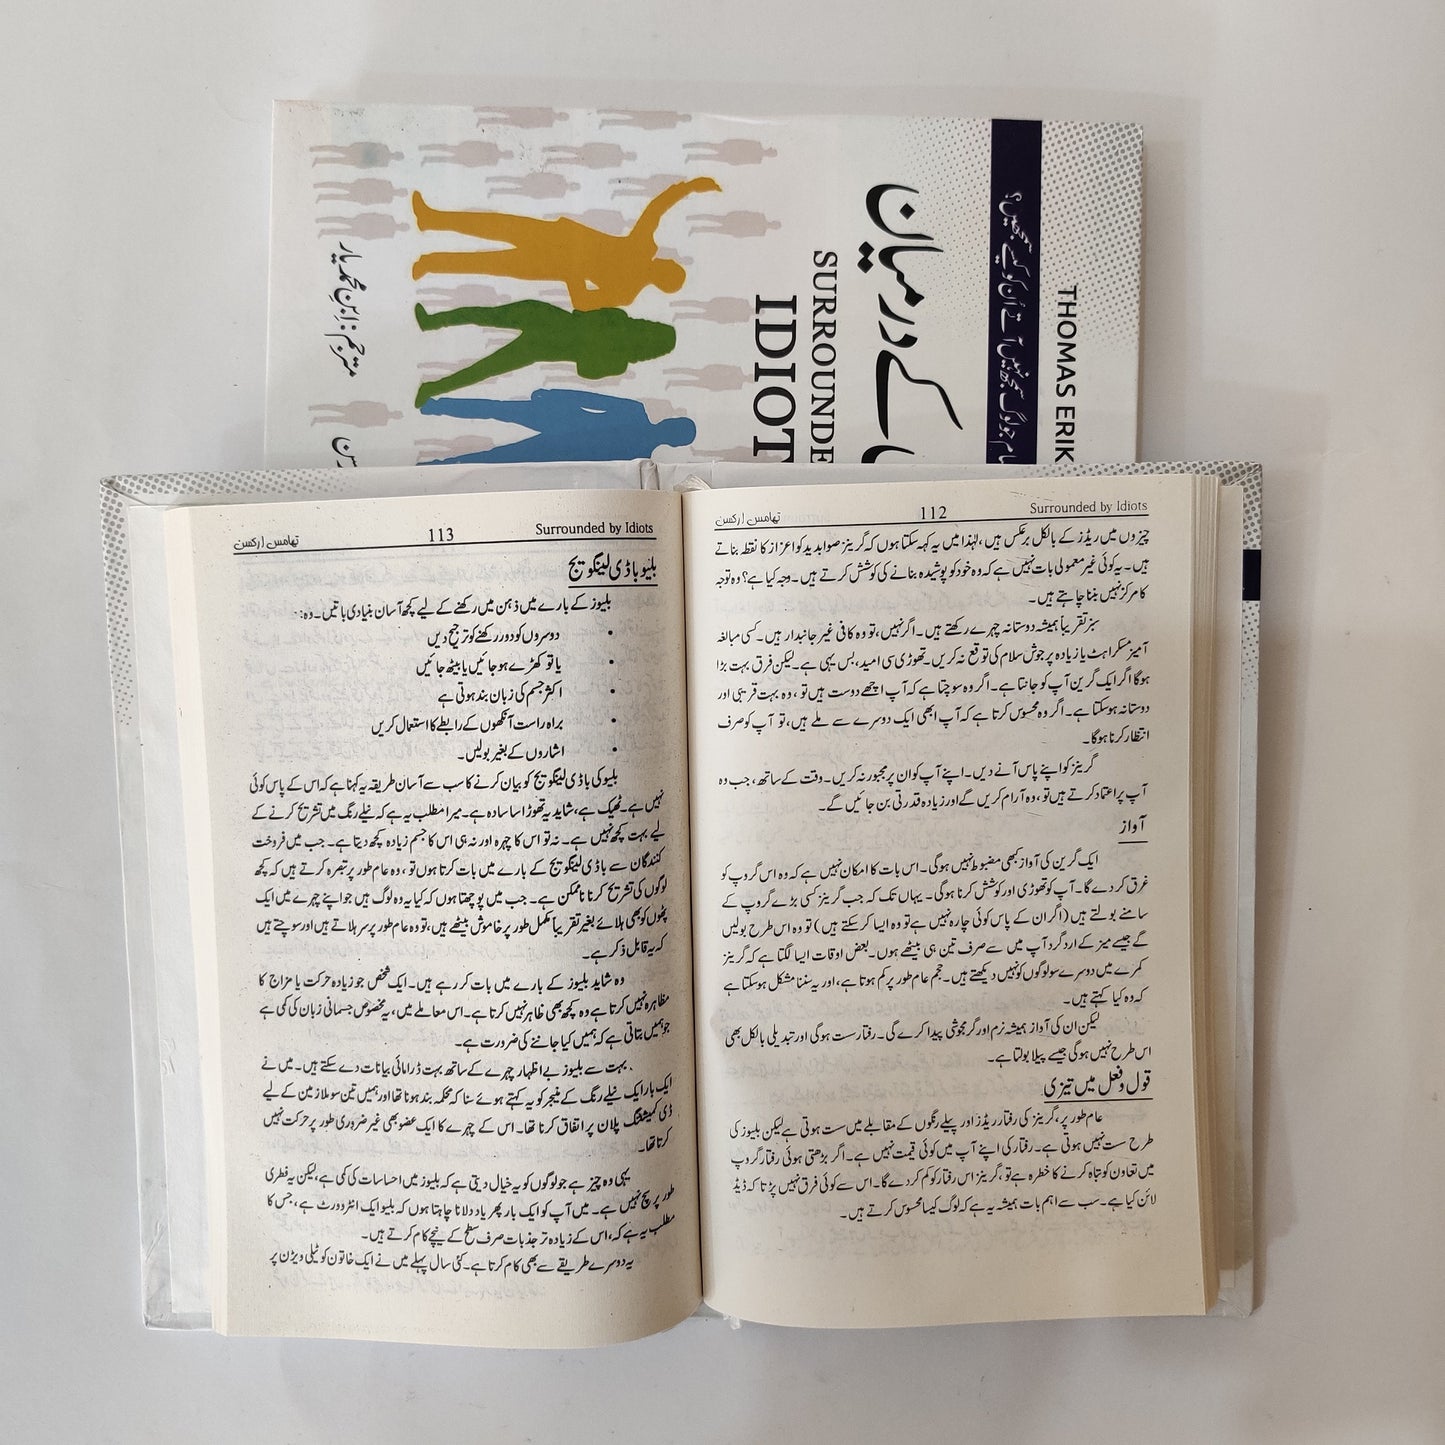 THOMAS ERIK
جو لوگ سمجھ نہیں آتے اُن کو کیسے سمجھیں؟
کے درمیان
SURROUNDE
IDIOT
مترجم: ابنِ محمد یار
تھامس ارکسن 112 Surrounded by Idiots
چیزوں میں ریڈز کے بالکل برعکس ہیں، لہٰذا میں یہ کہہ سکتا ہوں کہ گرینز صوابدید کو اعزاز کا نقطہ بناتے
ہیں۔ یہ کوئی غیر معمولی بات نہیں ہے کہ وہ خود کو پوشیدہ بنانے کی کوشش کرتے ہیں۔ وجہ کیا ہے؟ وہ توجہ
کا مرکز نہیں بننا چاہتے ہیں۔
سبز تقریباً ہمیشہ دوستانہ چہرے رکھتے ہیں۔ اگر نہیں، تو وہ کافی غیر جانبدار ہیں۔ کسی مبالغہ
آمیز مسکراہٹ یا زیادہ پرجوش سلام کی توقع نہ کریں۔ تھوڑی سی امید، بس یہی ہے۔ لیکن فرق بہت بڑا
ہوگا اگر ایک گرین آپ کو جانتا ہے۔ اگر وہ سوچتا ہے کہ آپ اچھے دوست ہیں تو، وہ بہت قریبی اور
دوستانہ ہوسکتا ہے۔ اگر وہ محسوس کرتا ہے کہ آپ ابھی ایک دوسرے سے ملے ہیں، تو آپ کو صرف
انتظار کرنا ہوگا۔
گرینز کو اپنے پاس آنے دیں۔ اپنے آپ کو ان پر مجبور نہ کریں۔ وقت کے ساتھ، جب وہ
آپ پر اعتماد کرتے ہیں تو، وہ آرام کریں گے اور زیادہ قدرتی بن جائیں گے۔
آواز
ایک گرین کی آواز کبھی مضبوط نہیں ہوگی۔ اس بات کا امکان نہیں ہے کہ وہ اس گروپ کو
غرق کر دے گا۔ آپ کو تھوڑی اور کوشش کرنا ہوگی۔ یہاں تک کہ جب گرینز کسی بڑے گروپ کے
سامنے بولتے ہیں (اگر ان کے پاس کوئی چارہ نہیں ہے تو وہ ایسا کرسکتے ہیں) تو وہ اس طرح بولیں
گے جیسے میز کے ارد گرد آپ میں سے صرف تین ہی بیٹھے ہوں۔ بعض اوقات ایسا لگتا ہے کہ گرینز
کمرے میں دوسرے سو لوگوں کو نہیں دیکھتے ہیں۔ حجم عام طور پر کم ہوتا ہے، اور یہ سننا مشکل ہوسکتا ہے
کہ وہ کیا کہتے ہیں۔
لیکن ان کی آواز ہمیشہ نرم اور گرمجوشی پیدا کرے گی۔ رفتار سست ہوگی اور تبدیلی بالکل بھی
اس طرح نہیں ہوگی جیسے پیلا بولتا ہے۔
قول و فعل میں تیزی
عام طور پر، گرینز کی رفتار ریڈز اور پیلے رنگوں کے مقابلے میں سست ہوتی ہے لیکن بلیوز کی
طرح سست نہیں ہوتی ہے۔ رفتار کی اپنے آپ میں کوئی قیمت نہیں ہے۔ اگر بڑھتی ہوئی رفتار گروپ
میں تعاون کو تباہ کرنے کا خطرہ ہے تو، گرینز اس رفتار کو کم کردے گا۔ اس سے کوئی فرق نہیں پڑتا کہ ڈیڈ
لائن کیا ہے۔ سب سے اہم بات ہمیشہ یہ ہے کہ لوگ کیسا محسوس کرتے ہیں۔
تھامس ارکسن 113 Surrounded by Idiots
بلیو باڈی لینگویج
بلیوز کے بارے میں ذہن میں رکھنے کے لیے کچھ آسان بنیادی باتیں۔ وہ:
• دوسروں کو دور رکھنے کو ترجیح دیں
• یا تو کھڑے ہو جائیں یا بیٹھ جائیں
• اکثر جسم کی زبان بند ہوتی ہے
• براہ راست آنکھوں کے رابطے کا استعمال کریں
• اشاروں کے بغیر بولیں۔
بلیو کی باڈی لینگویج کو بیان کرنے کا سب سے آسان طریقہ یہ کہنا ہے کہ اس کے پاس کوئی
نہیں ہے۔ ٹھیک ہے، شاید یہ تھوڑا سا سادہ ہے۔ میرا مطلب یہ ہے کہ نیلے رنگ میں تشریح کرنے کے
لیے بہت کچھ نہیں ہے۔ نہ تو اس کا چہرہ اور نہ ہی اس کا جسم زیادہ کچھ دیتا ہے۔ جب میں فروخت
کنندگان سے باڈی لینگویج کے بارے میں بات کرتا ہوں تو، وہ عام طور پر تبصرہ کرتے ہیں کہ کچھ
لوگوں کی تشریح کرنا ناممکن ہے۔ جب میں پوچھتا ہوں کہ کیا یہ وہ لوگ ہیں جو اپنے چہرے میں ایک
پٹھوں کو بھی ہلائے بغیر تقریباً مکمل طور پر خاموش بیٹھے ہیں، تو وہ عام طور پر سر ہلاتے ہیں اور سوچتے ہیں
کہ یہ قابل ذکر ہے۔
وہ شاید بلیوز کے بارے میں بات کر رہے ہیں۔ ایک شخص جو زیادہ حرکت یا مزاج کا
مظاہرہ نہیں کرتا ہے وہ کچھ بھی ظاہر نہیں کرتا ہے۔ اس معاملے میں، یہ مخصوص جسمانی زبان کی کمی ہے
جو ہمیں بتاتی ہے کہ ہمیں کیا جاننے کی ضرورت ہے۔
بہت سے بلیوز بے اظہار چہرے کے ساتھ بہت ڈرامائی بیانات دے سکتے ہیں۔ میں نے
ایک بار ایک نیلے رنگ کے منیجر کو یہ کہتے ہوئے سنا کہ محکمہ بند ہونا تھا اور ہمیں تین سو ملازمین کے لیے
ڈی کمیشننگ پلان پر اتفاق کرنا تھا۔ اس کے چہرے کا ایک عضو بھی غیر ضروری طور پر حرکت نہیں
کرتا تھا۔
یہی وہ چیز ہے جو لوگوں کو یہ خیال دیتی ہے کہ بلیوز میں احساسات کی کمی ہے، لیکن یہ فطری
طور پر سچ نہیں ہے۔ میں آپ کو ایک بار پھر یاد دلانا چاہتا ہوں کہ بلیو ایک انٹروورٹ ہے، جس کا
مطلب یہ ہے کہ، اس کے زیادہ تر جذبات صرف سطح کے نیچے کام کرتے ہیں۔
یہ دوسرے طریقے سے بھی کام کرتا ہے۔ کئی سال پہلے میں نے ایک خاتون کو ٹیلی ویژن پر